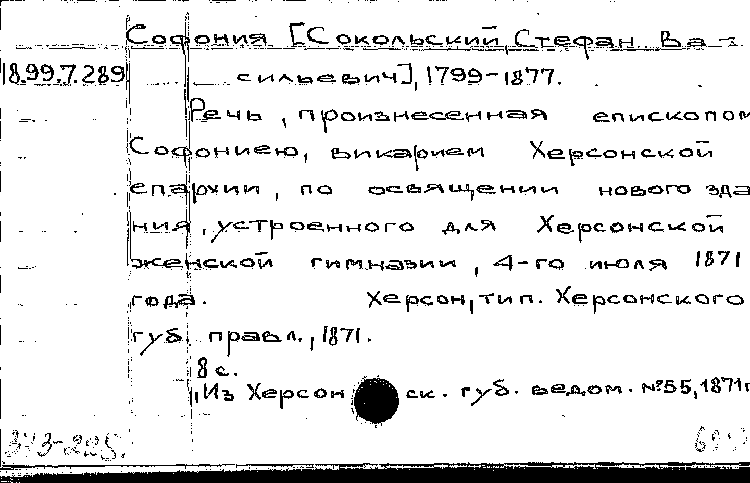 Софония [Сокольский, Стефан Ва-
18.99.7.289 сильевич], 1799-1877.
Речь, произнесенная епископом
Софониею, викарием Херсонской
епархии, по освящении нового зда
ния, устроенного для Херсонской
женской гимназии, 4-го июля 1871
года. Херсон, тип. Херсонского
губ. правл., 1871.
8 с.
Из Херсон ск. губ. ведом. №55, 1871г